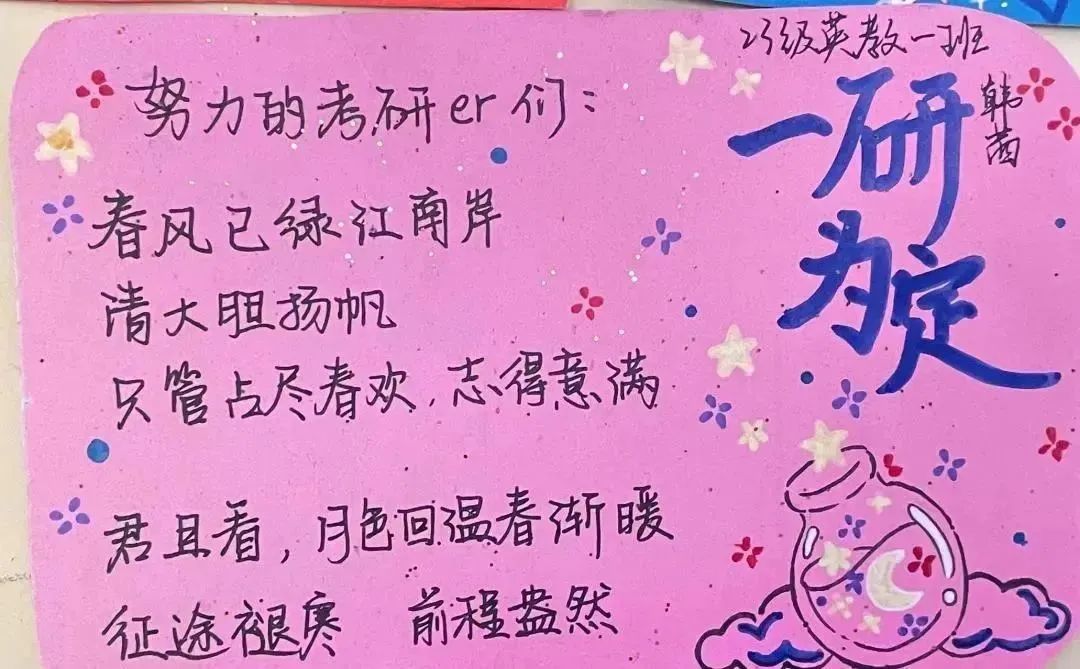 努力的考研er们:
春风已绿江南岸
清大胆扬帆
只管占尽春欢,志得意满
君且看,月色回温春渐暖
征途褪寒 前程盎然
23级英教一班
韩茜
一研
为定